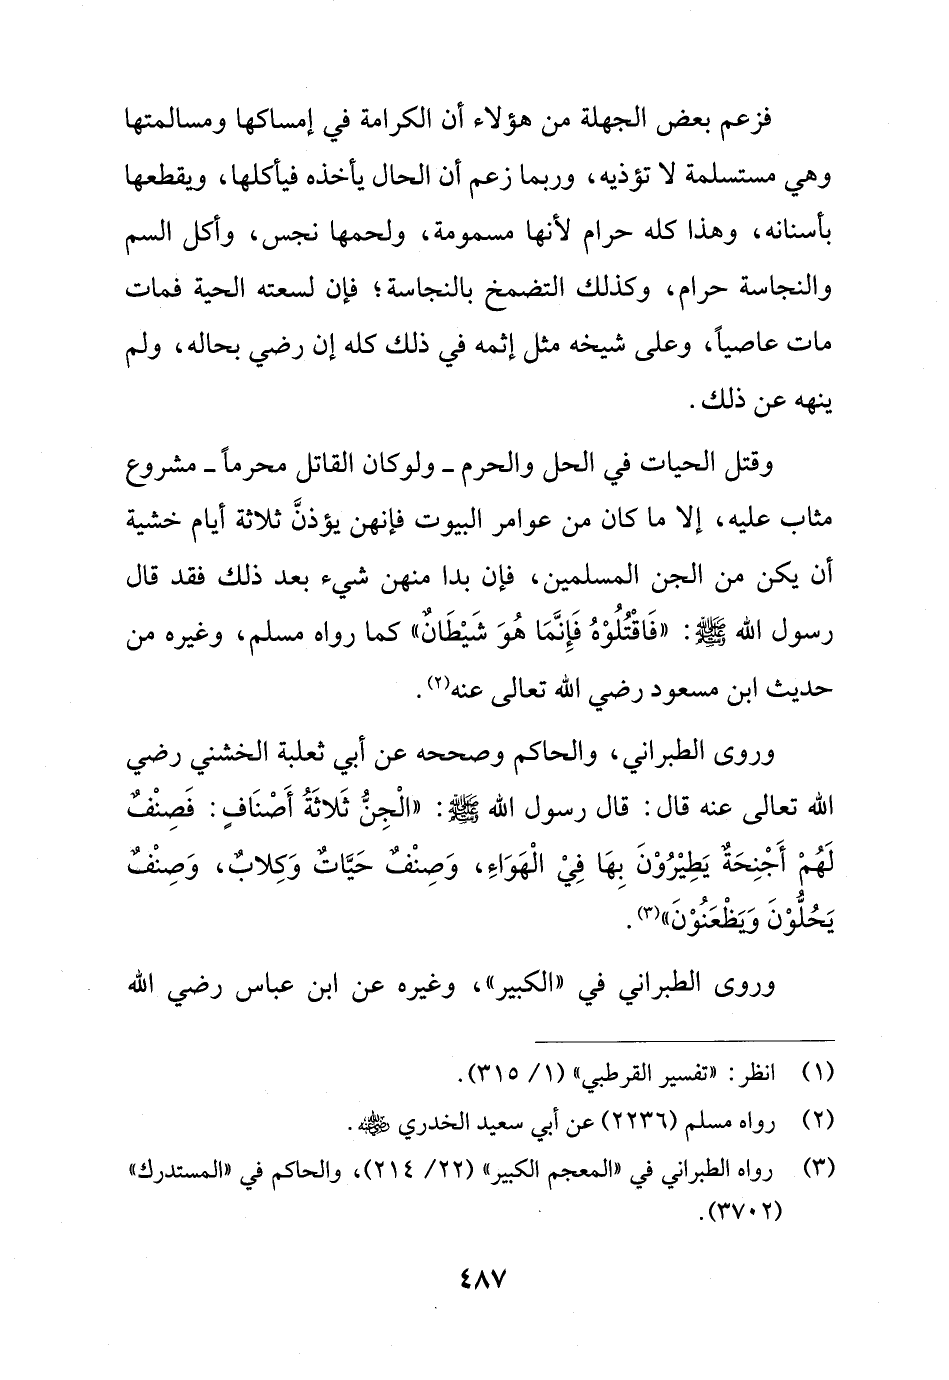 فزعم بعض الجهلة من هؤلاء أن الكرامة في إمساكها ومسالمتها
وهي مستسلمة لا تؤذيه، وربما زعم أن الحال يأخذه فيأكلها، ويقطعها
بأسنانه، وهذا كله حرام لأنها مسمومة، ولحمها نجس، وأكل السم
والنجاسة حرام، وكذلك التضمخ بالنجاسة؛ فإن لسعته الحية فمات
مات عاصياً، وعلى شيخه مثل إثمه في ذلك كله إن رضي بحاله، ولم
ينهه عن ذلك.
وقتل الحيات في الحل والحرم ـ ولو كان القاتل محرماً ـ مشروع
مثاب عليه، إلا ما كان من عوامر البيوت فإنهن يؤذنَّ ثلاثة أيام خشية
أن يكن من الجن المسلمين، فإن بدا منهن شيء بعد ذلك فقد قال
رسول الله ﷺ: «فَاقْتُلُوْهُ فَإِنَّمَا هُوَ شَيْطَانٌ» كما رواه مسلم، وغيره من
حديث ابن مسعود رضي الله تعالى عنه(٢).
وروى الطبراني، والحاكم وصححه عن أبي ثعلبة الخشني رضي
الله تعالى عنه قال: قال رسول الله ﷺ: «الْجِنُّ ثَلاثَةُ أَصْنَافٍ: فَصِنْفٌ
لَهُمْ أَجْنِحَةٌ يَطِيْرُوْنَ بِهَا فِيْ الْهَوَاءِ، وَصِنْفٌ حَيَّاتٌ وَكِلابٌ، وَصِنْفٌ
يَحُلُّوْنَ وَيَظْعَنُوْنَ»(٣).
وروى الطبراني في «الكبير»، وغيره عن ابن عباس رضي الله
(١) انظر: «تفسير القرطبي» (١/ ٣١٥).
(٢) رواه مسلم (٢٢٣٦) عن أبي سعيد الخدري رضي الله عنه.
(٣) رواه الطبراني في «المعجم الكبير» (٢٢/ ٢١٤)، والحاكم في «المستدرك»
(٣٧٠٢).
٤٨٧